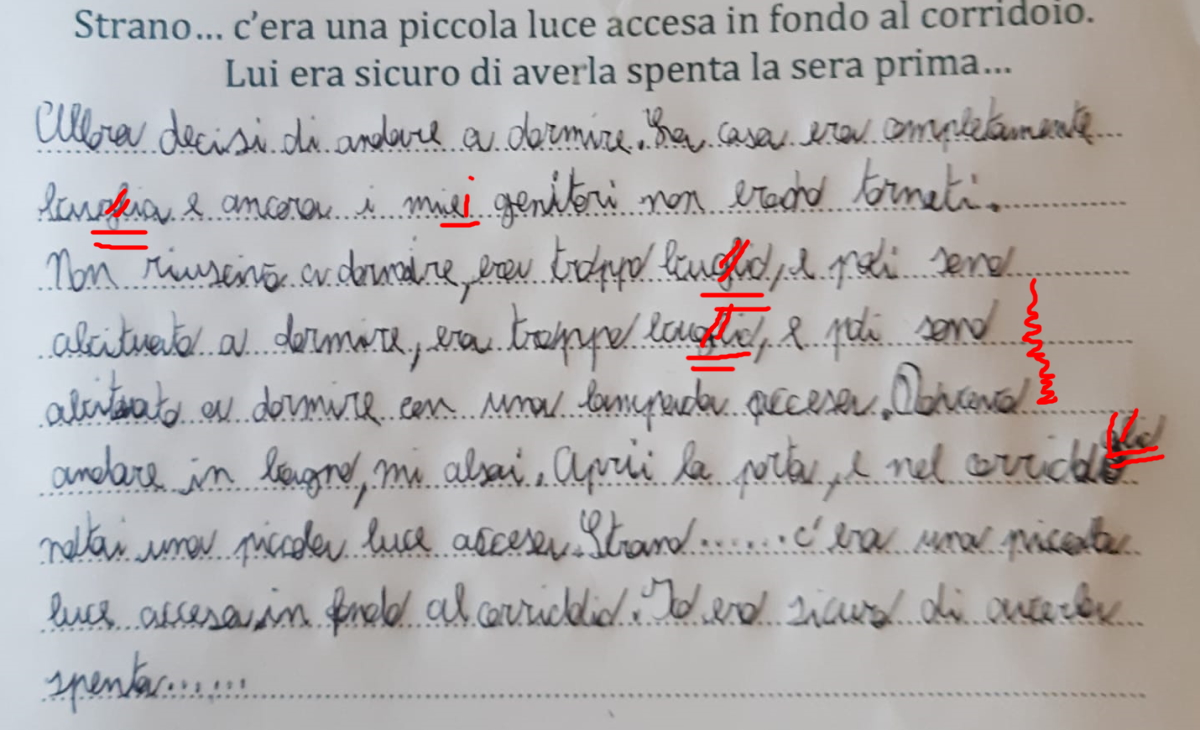 Strano... c'era una piccola luce accesa in fondo al corridoio.
Lui era sicuro di averla spenta la sera prima...
Allora decisi di andare a dormire. La casa era completamente
e ancora i miei genitori non erano tornati.
Non riuscivo a dormire, era troppo buglio, e poi sono
abituato a dormire, era troppo buglio, e poi sono
abituato a dormire con una lampada accesa. Dovevo
andare in bagno, mi alzai. Aprii la porta, e nel
notai una piccola luce accesa. Strano....... c'era una piccola
luce accesa in fondo al corridoio. Io ero sicuro di averla
spenta......